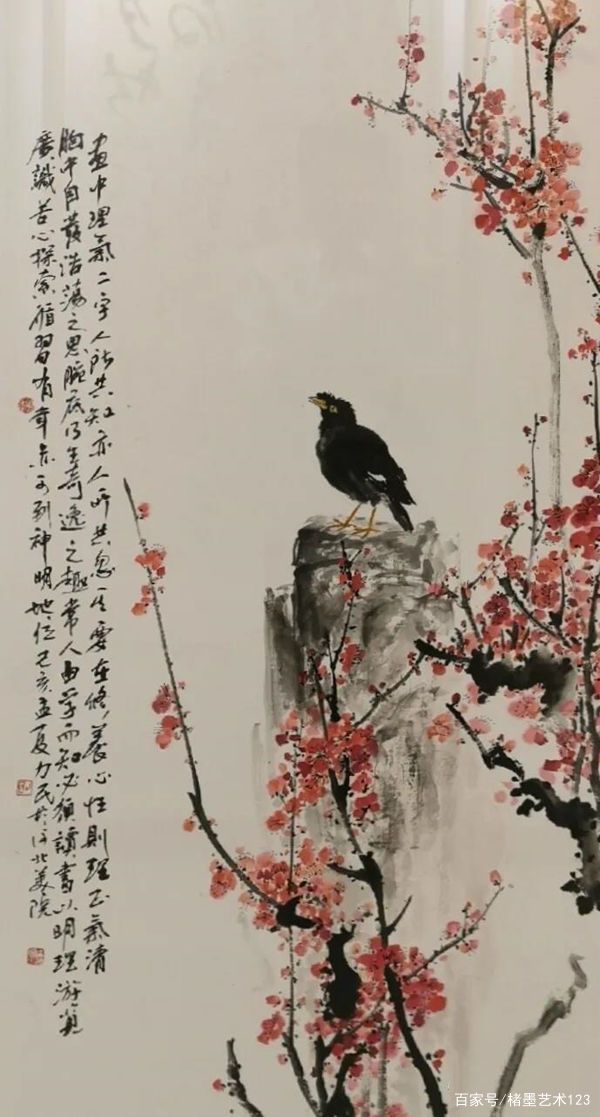 畫中理氣二字人所共知亦人所共忽其要在修養心性則理正氣清
胸中自發浩蕩之思腕底乃生奇逸之趣常人由学而知必須讀書以明理游覽
廣識苦心探索循習有章亦可到神明地位己亥孟夏力民於河北美院
百家号/楮墨艺术123